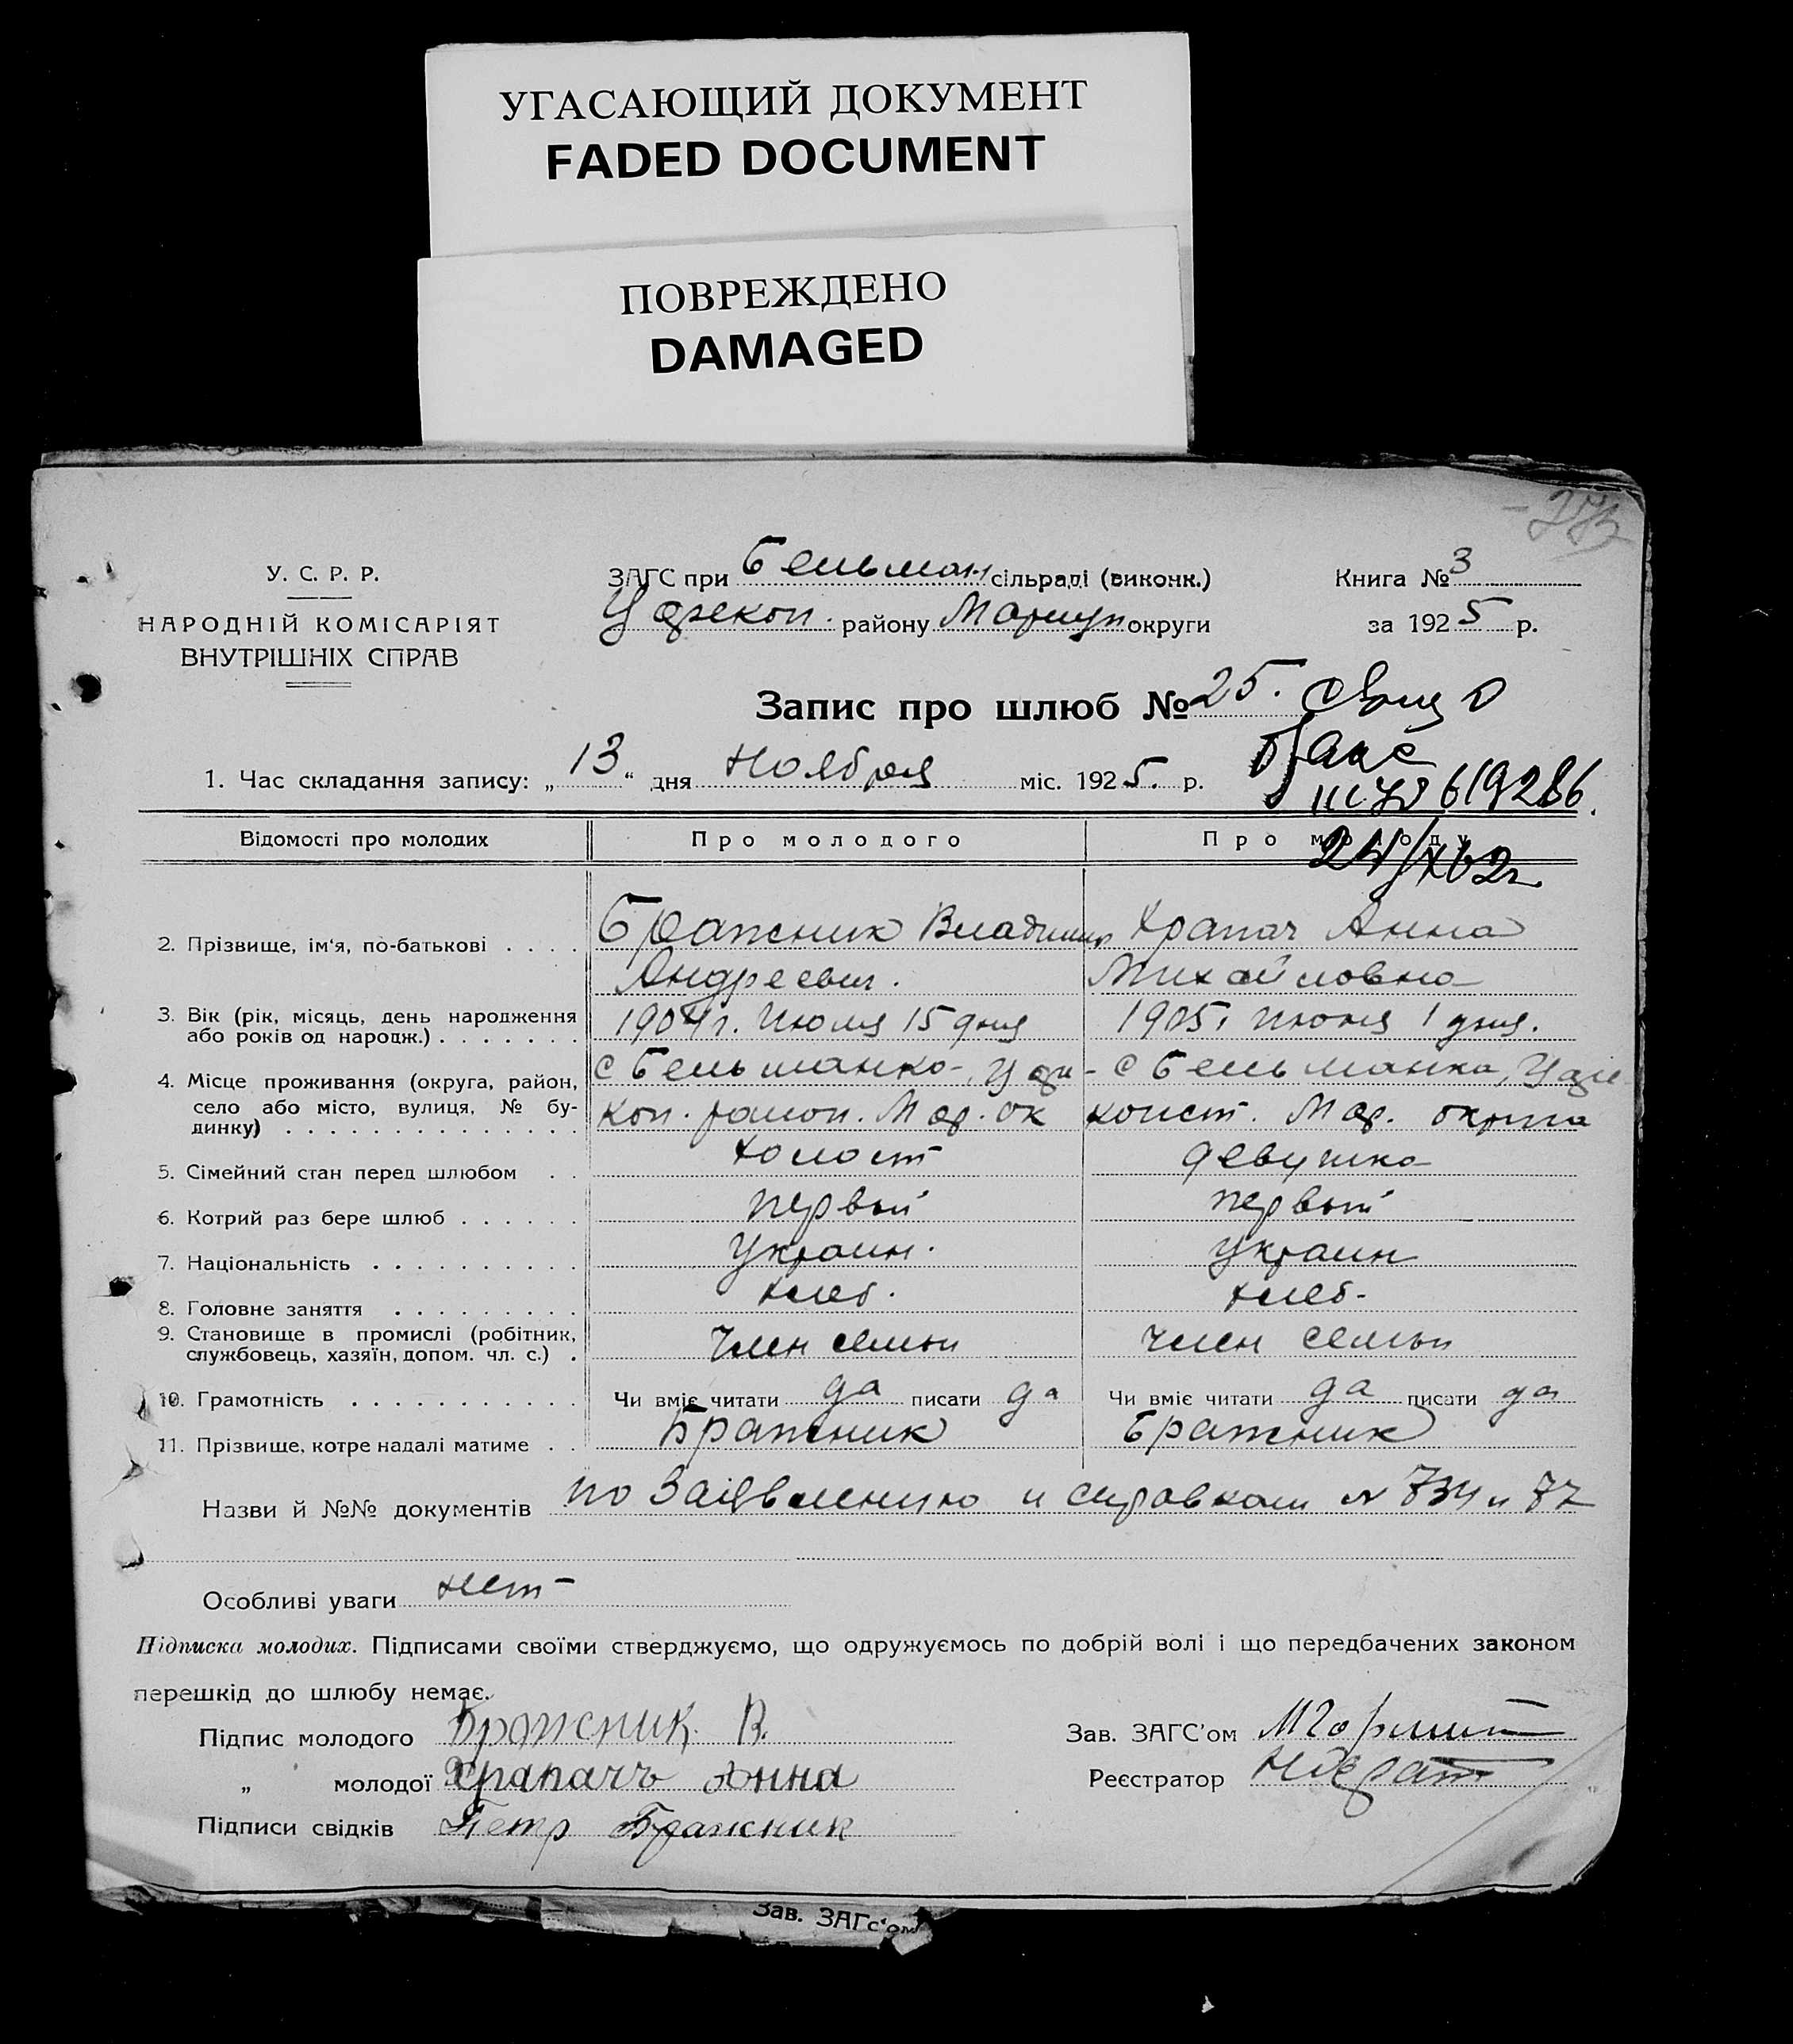 УГАСАЮЩИЙ ДОКУМЕНТ
FADED DOCUMENT
ПОВРЕЖДЕНО
DAMAGED
У. С. Р. Р.
НАРОДНІЙ КОМІСАРІЯТ
ВНУТРІШНІХ СПРАВ
ЗАГС при Бельман сільраді (виконк.)
Царекон. району Мариуп округи
Книга № 3
за 1925 р.
Запис про шлюб № 25.
браке
619286
1. Час складання запису: „13“ дня Ноября міс. 1925. р.
Відомості про молодих Про молодого Про молоду
2. Прізвище, ім'я, по-батькові . . . . Бражник Владимир Храпач Анна
Андреевич. Михайловна
3. Вік (рік, місяць, день народження 1904 г. Июля 15 дня 1905, июня 1 дня.
або років од народж.) . . . . . . .
4. Місце проживання (округа, район, с Бельманка, Царе- с Бельманка, Царе
село або місто, вулиця, № бу- кон. район. Мар. ок конст. Мар. округа
динку) . . . . . . . . . . . . . .
5. Сімейний стан перед шлюбом . . холост девушка
6. Котрий раз бере шлюб . . . . . . первый первый
7. Національність . . . . . . . . . . Украин. украин
8. Головне заняття . . . . . . . . . хлеб. хлеб-
9. Становище в промислі (робітник, член семьи член семьи
службовець, хазяїн, допом. чл. с.) .
10. Грамотність . . . . . . . . . . . Чи вміє читати да писати да Чи вміє читати да писати да
11. Прізвище, котре надалі матиме . . Бражник Бражник
Назви й №№ документів по Заявлению и справкам № 734 и 77
Особливі уваги нет-
Підписка молодих. Підписами своїми стверджуємо, що одружуємось по добрій волі і що передбачених законом
перешкід до шлюбу немає.
Підпис молодого Бражник. В.
Зав. ЗАГС'ом
„ молодої Храпачъ Анна
Реєстратор
Підписи свідків Петр Бражник
Зав. ЗАГс'ом